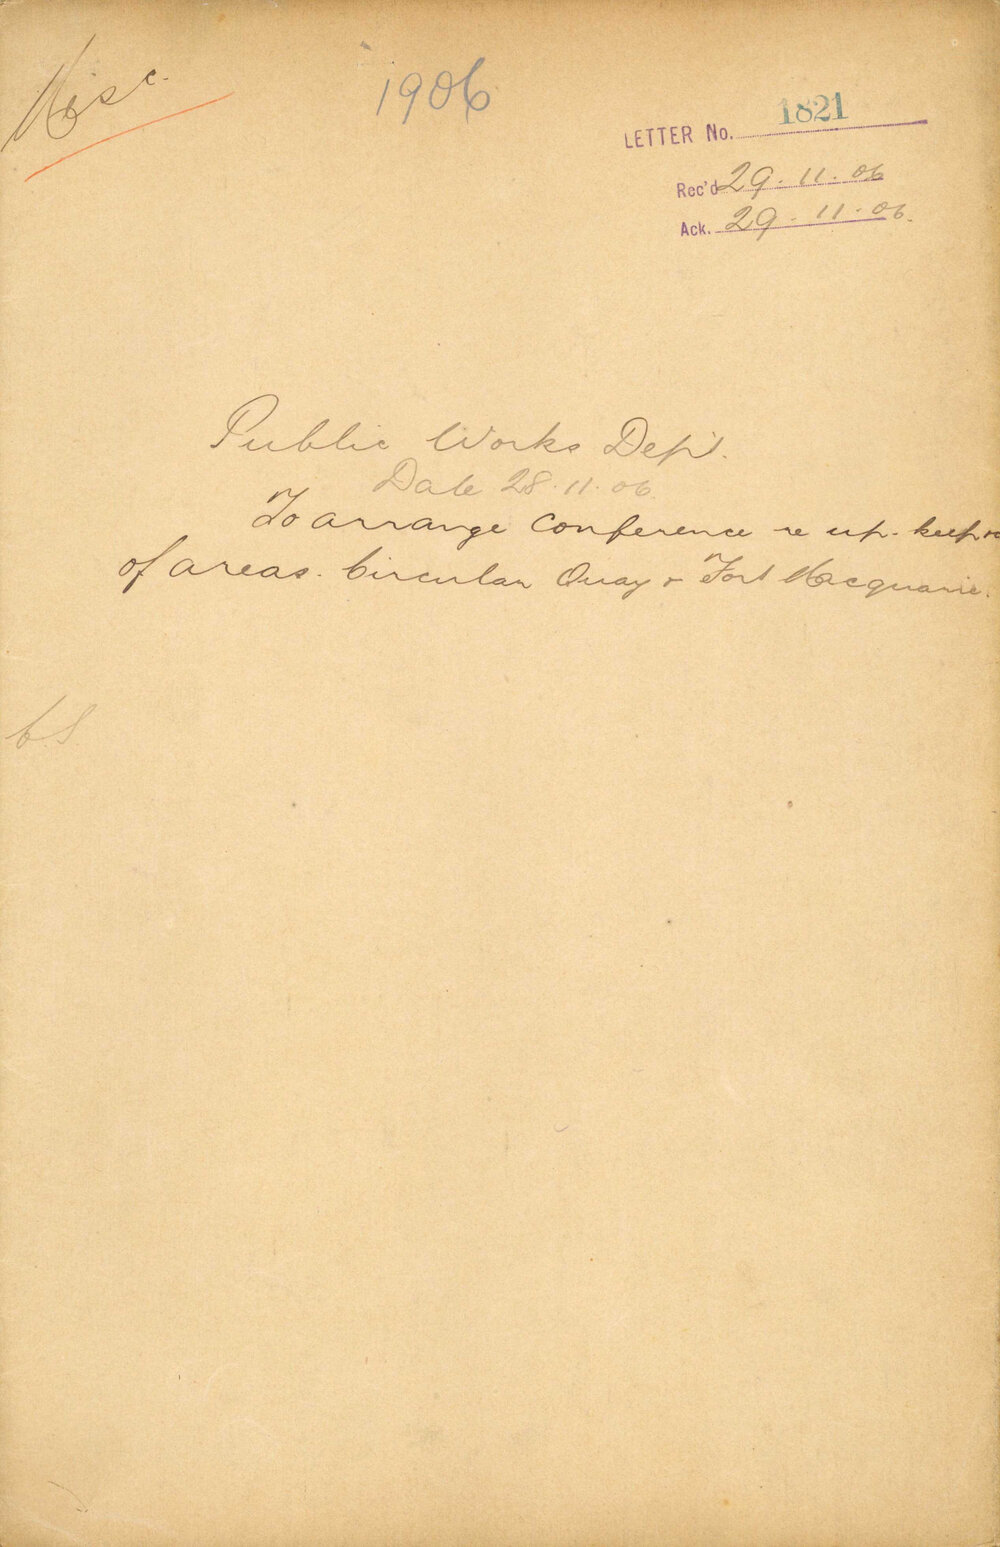 Misc.
1906
LETTER No. 1821
Rec'd 29.11.06
Ack. 29.11.06.
Public Works Dep't.
Date 28.11.06
To arrange conference re up-keep
of areas. Circular Quay & Fort Macquarie.